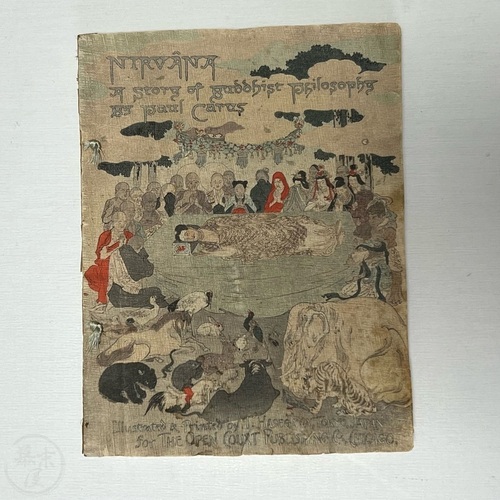 NIRVÂNA
A Story of Buddhist Philosophy
By Paul Carus
Illustrated & Printed by T. HASEGAWA TOKYO JAPAN
for THE OPEN COURT PUBLISHING Co. CHICAGO.